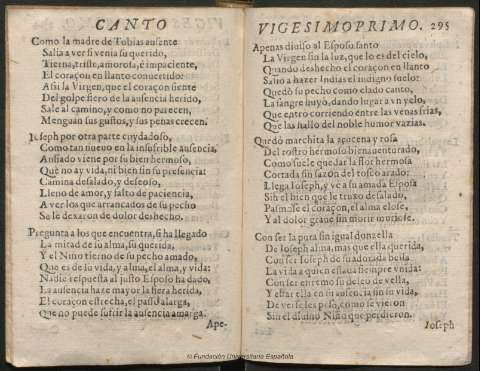 CANTO
Como la madre de Tobias ausente
Salia a ver si venia su querido,
Tierna, triste, amorosa, è impaciente,
El coraçon en llanto conuertido:
Assi la Virgen, que el coraçon siente
Del golpe fiero de la ausencia herido,
Sale al camino, y como no parecen,
Menguan sus gustos, y sus penas crecen.
Ioseph por otra parte cuydadoso,
Como tan nueuo en la insufrible ausencia,
Ansiado viene por su bien hermoso,
Que no ay vida, ni bien sin su presencia:
Camina desalado, y deseoso,
Lleno de amor, y falto de paciencia,
A ver los que arrancados de su pecho
Se le dexaron de dolor deshecho.
Pregunta a los que encuentra, si ha llegado
La mitad de su alma, su querida,
Y el Niño tierno de su pecho amado,
Que es de su vida, y alma, el alma, y vida:
Nadie respuesta al justo Esposo ha dado,
La ausencia haze mayor la fiera herida,
El coraçon estrecha, el passo alarga,
Que no puede sufrir la ausencia amarga.
Ape-
VIGESIMOPRIMO. 295
Apenas diuiso al Esposo santo
La Virgen sin la luz, que lo es del cielo,
Quando deshecho el coraçon en llanto
Salio a hazer Indias el indigno suelo:
Quedò su pecho como elado canto,
La sangre huyò, dando lugar a vn yelo,
Que entro corriendo entre las venas frias,
Que las hallo del noble humor vazias.
Quedò marchita la açucena y rosa
Del rostro hermoso bienauenturado,
Como suele quedar la flor hermosa
Cortada sin sazon del tosco arado:
Llega Ioseph, y ve a su amada Esposa
Sin el bien que le truxo desalado,
Pasmose el coraçon, el alma elose,
Y al dolor graue sin morir muriose.
Con ser la pura sin igual donzella
De Ioseph alma, mas que ella querida,
Con ser Ioseph de su adorada bella
La vida a quien estaua siempre vnida:
Con ser estremo su deseo de vella,
Y estar ella en su ausencia sin su vida,
De verse les pesò, como se vieron
Sin el diuino Niño que perdieron.
Ioseph
© Fundación Universitaria Española